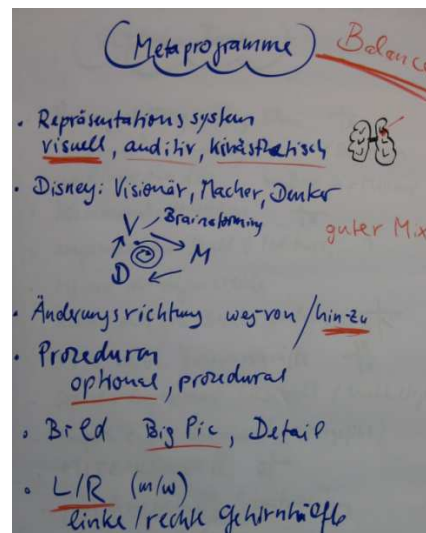 Metaprogramme
Balance
• Repräsentationssystem
visuell, auditiv, kinästhetisch
• Disney: Visionär, Macher, Denker
V Brainstorming
D M
guter Mix
• Änderungsrichtung weg-von/hin-zu
• Prozeduran
optional, prozedural
• Bild Big Pic, Detail
• L/R (m/w)
linke/rechte Gehirnhälfte